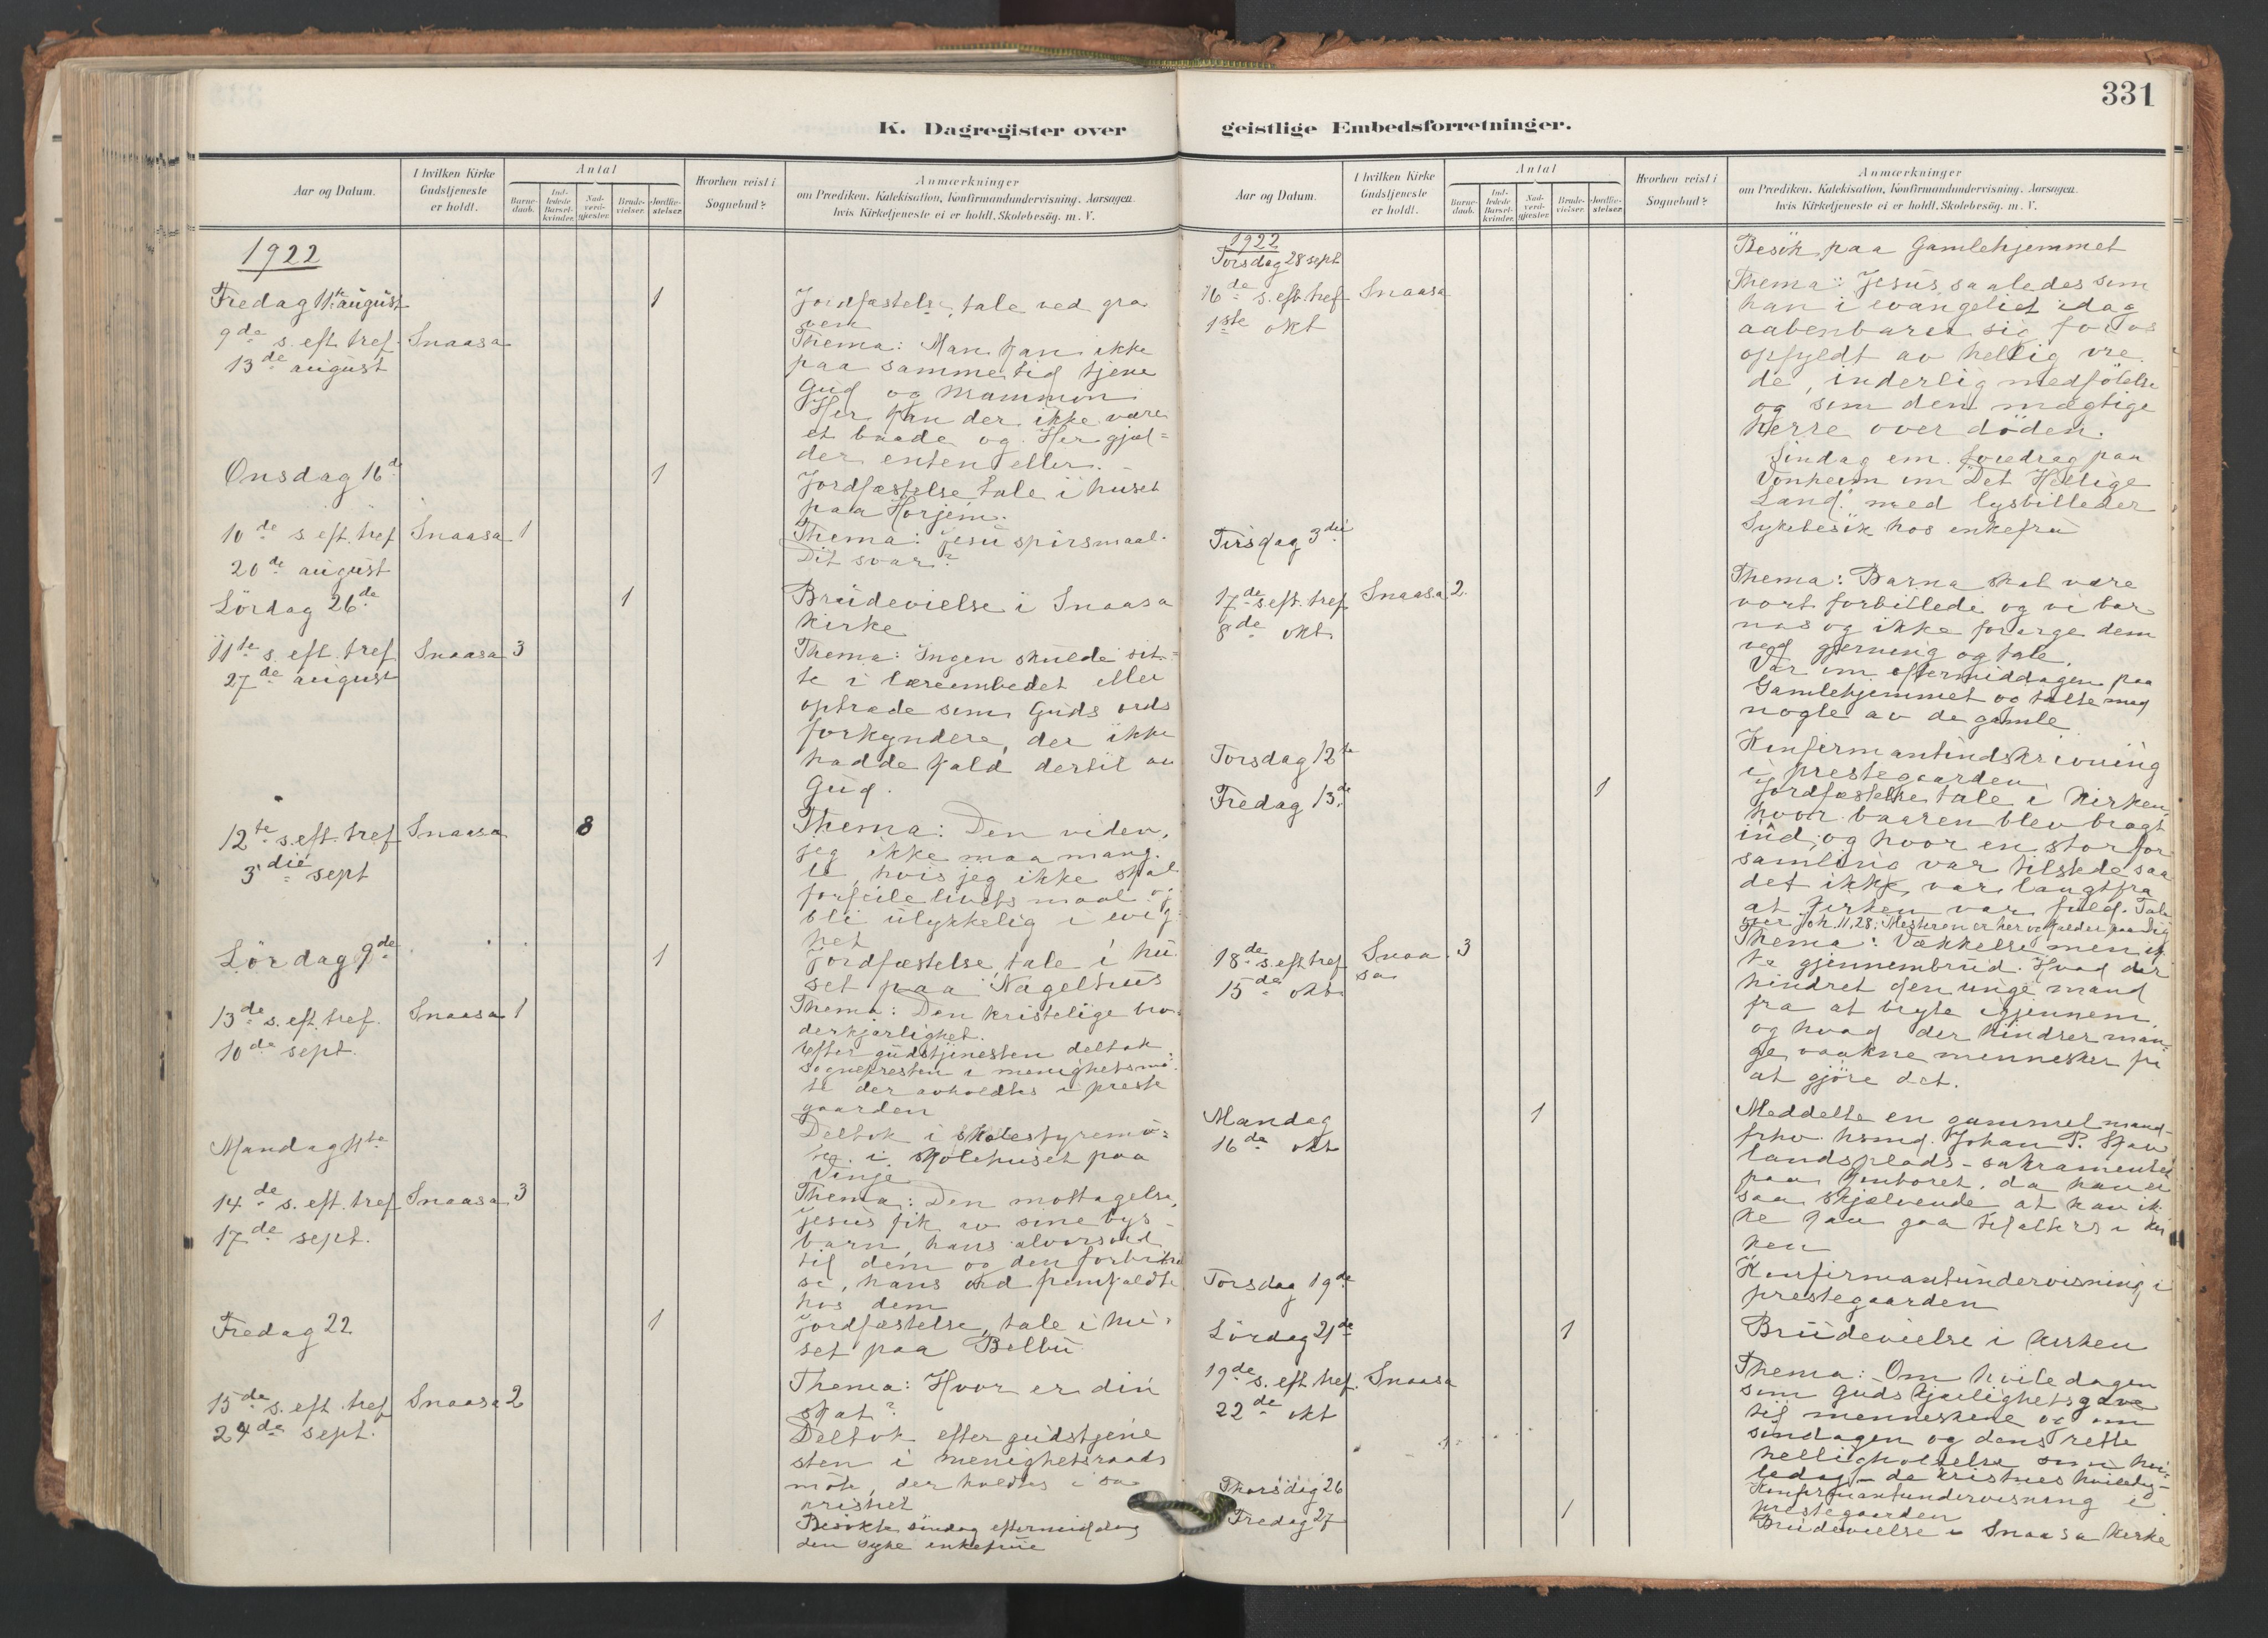 331
K. Dagregister over
geistlige Embedsforretninger.
Aar og Datum.
I hvilken Kirke
Gudstjeneste
er holdt.
Antal
Barne-
daab.
Ind-
ledede
Barsel-
kvinder.
Nad-
verd-
gjester.
Brude-
vielser.
Jordfæ-
stelser.
Hvorhen reist i
Sognebud?
Anmærkninger
om Prædiken, Katekisation, Konfirmandundervisning, Aarsagen,
hvis Kirketjeneste ei er holdt, Skolebesøg, m. V.
1922
Fredag 11te august 1 Jordfæstelse, tale ved gra
ven
9de s. eft. tref. Snaasa Thema: Man kan ikke
13de august paa samme tid tjene
Gud og Mammon
Her kan der ikke være
et baade og. Her gjæl=
der enten eller.
Onsdag 16de 1 Jordfæstelse tale i huset
paa Horjem.
10de s. eft. tref Snaasa 1 Thema: Jesu spørsmaal.
20de august Dit svar?
Lördag 26de 1 Brudevielse i Snaasa
kirke
11te s. eft. tref Snaasa 3 Thema: Ingen skulde sit=
27de august te i læreembedet eller
optræde som Guds ords
forkyndere, der ikke
hadde kald dertil av
Gud.
12te s. eft. tref Snaasa 8 Thema: Den viden,
3die sept jeg ikke maa mang-
le, hvis jeg ikke skal
forfeile livets maal og
bli ulykkelig i evig
het
Lördag 9de 1 Jordfæstelse, tale i hu
set paa Nagelhus
13de s. eft. tref. Snaasa 1 Thema: Den kristelige bro-
10de sept. derkjærlighet.
Efter gudstjenesten deltok
sognepresten i menighetsmö-
te der avholdtes i preste
gaarden
Mandag 11te Deltok i skolestyremö=
te i skolehuset paa
Vinje
14de s. eft. tref Snaasa 3 Thema: Den mottagelse,
17de sept. Jesus fik av sine bys-
barn, hans alvorsord
til dem og den forbitrel
se, hans ord fremkaldte
hos dem
Fredag 22 1 Jordfæstelse, tale i hu=
set paa Belbu
15de s. eft. tref Snaasa 2 Thema: Hvor er din
24de sept. skat?
Deltok efter gudstjene
sten i menighetsraads
möte, der holdtes i sa
kristiet
Besökte söndag eftermiddag
den syke enkefrue
Aar og Datum.
I hvilken Kirke
Gudstjeneste
er holdt.
Antal
Barne-
daab.
Ind-
ledede
Barsel-
kvinder.
Nad-
verd-
gjester.
Brude-
vielser.
Jordfæ-
stelser.
Hvorhen reist i
Sognebud?
Anmærkninger
om Prædiken, Katekisation, Konfirmandundervisning, Aarsagen,
hvis Kirketjeneste ei er holdt, Skolebesøg, m. V.
1922
Torsdag 28 sept Besök paa Gamlehjemmet
16de s. eft. tref Snaasa Thema: Jesus saaledes som
1ste okt han i evangeliet idag
aabenbarer sig for os
opfyldt av hellig vre
de, inderlig medfölelse
og som den mægtige
herre over döden.
Söndag em. foredrag paa
Vonheim om "Det Hellige
Land" med lysbilleder
Tirsdag 3die Sykebesök hos enkefru
17de s. eft. tref Snaasa 2 Thema: Barna skal være
8de okt vort forbillede og vi bar
nas og ikke forarge dem
ved gjerning og tale.
Var om eftermiddagen paa
Gamlehjemmet og talte med
nogle av de gamle
Torsdag 12te Konfirmantindskrivning
i prestegaarden
Fredag 13de 1 Jordfæstelse tale i kirken,
hvor baaren blev bragt
ind, og hvor en stor for
samling var tilstede saa
det ikke var langt fra
at kirken var fuld. Tale
over Joh. 11,28: Mesteren er her og kalder paa dig
18de s. eft. tref Snaa 3 Thema: Vækkelse men ik
15de okt sa ke gjennembrud. Hvad der
hindret den unge mand
fra at bryte igjennem,
og hvad der hindrer man-
ge vaakne mennesker fra
at gjöre det.
Mandag 1 Meddelte en gammel mand-
16de okt fhv. hsmd. Johan P.
landsplads - sakramentet
paa kontoret, da han er
saa skjælvende at han ik
ke kan gaa til alters i kir
ken
Torsdag 19de Konfirmantundervisning i
prestegaarden
Lördag 21de 1 Brudevielse i kirken
19de s. eft. tref. Snaasa Thema: Om hviledagen
22de okt som Guds kjærlighetsgave
til menneskene og om
söndagen og dens rette
helligholdelse som hvi-
ledag - de kristnes hviledag -
Thorsdag 26 Konfirmantundervisning i
prestegaarden
Fredag 27 1 Brudevielse i Snaasa kirke